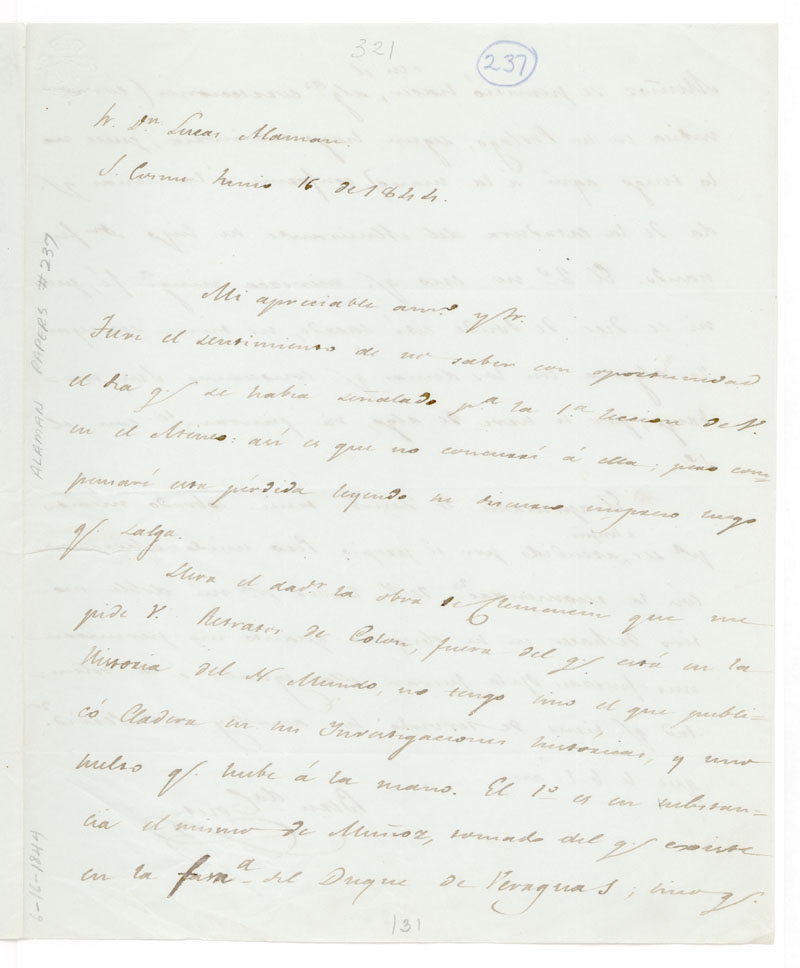 321
237
Sr. Dn. Lucas Alaman.
S. Cosme Junio 16 de 1844.
Mi apreciable amo. y Sr.
Tuve el sentimiento de no saber con oportunidad
el dia q. se habia señalado pa. la 1a. leccion de V.
en el Ateneo: asi es que no concurrí á ella; pero com-
pensaré esta pérdida leyendo su discurso impreso luego
q. salga.
Lleva el dador la obra de Clemencin que me
pide V. Retratos de Colon, fuera del q. está en la
Historia del N. Mundo, no tengo sino el que publi-
có Cladera en sus Investigaciones históricas, y uno
suelto q. hube á la mano. El 1o. es en substan-
cia el mismo de Muñoz, tomado del q. existe
en la casa del Duque de Veraguas; sino q.
131
ALAMAN PAPERS #237
6-16-1844